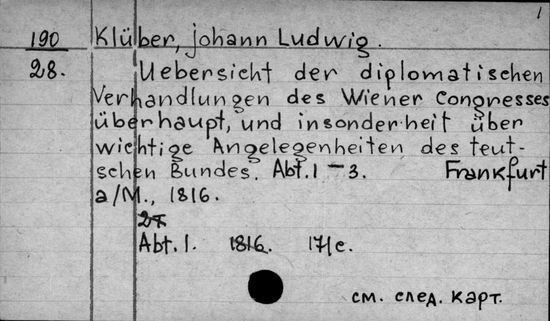 1
190 Klüber, Johann Ludwig.
28. Uebersicht der diplomatischen
Verhandlungen des Wiener Congresses
überhaupt, und insonderheit über
wichtige Angelegenheiten des teut-
schen Bundes. Abt. 1-3. Frankfurt
a/M., 1816.
Abt. 1. 1816. 171c.
см. след. карт.